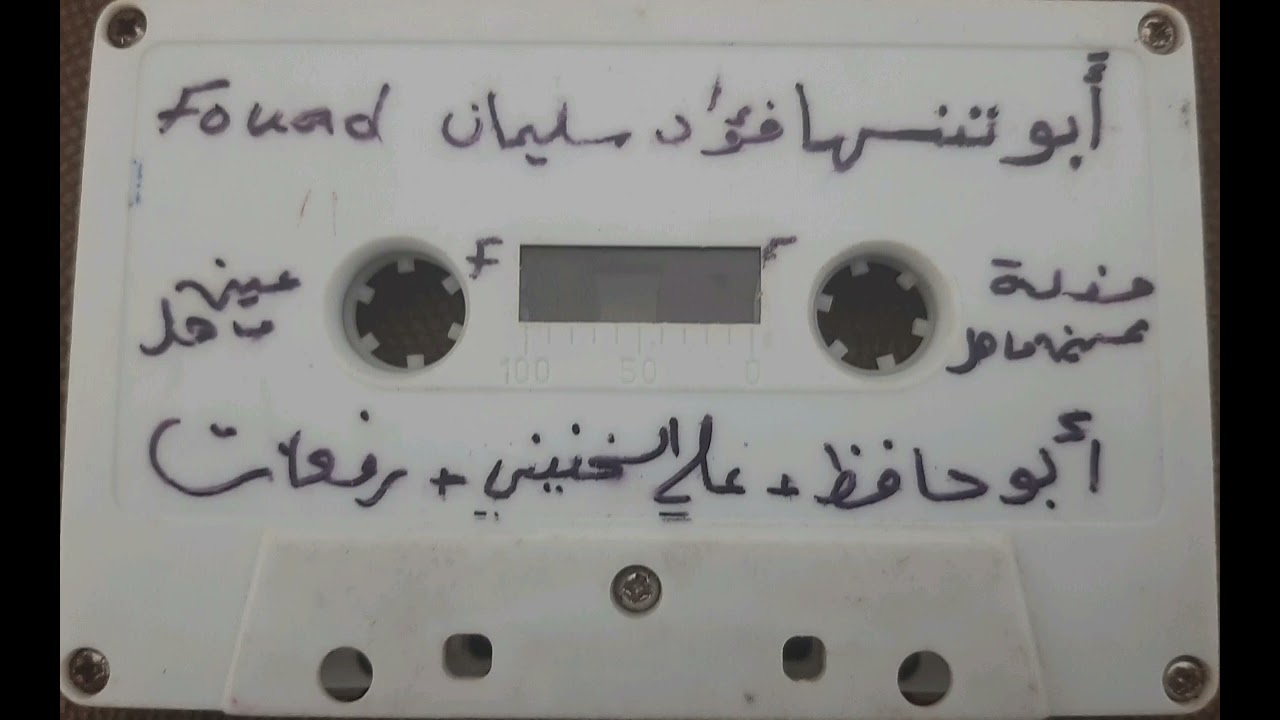 أبو تننسها فؤاد سليمان Fouad
F F
حفلة
عين ماهل
عين
ماهل
100 50 0
أبو حافظ + علي الخنيني + رفعات